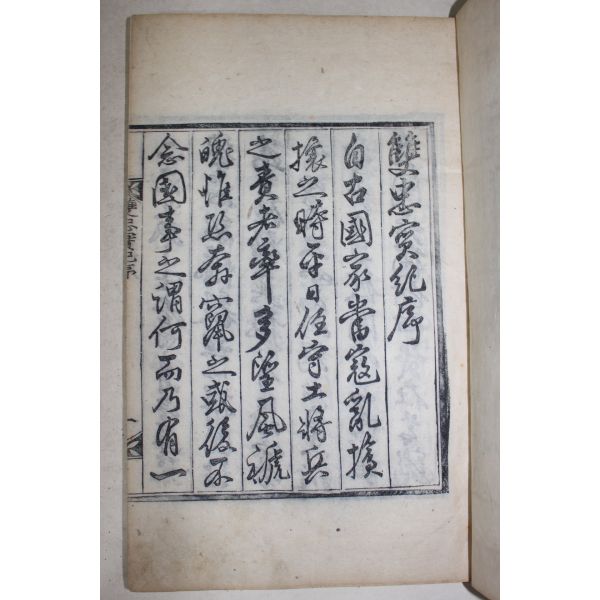 雙忠實紀序
自古國家當寇亂搶
攘之時平日任守土將兵
之責者率多望風褫
魄惟思奔竄之頭後不
念國事之謂何而乃有一